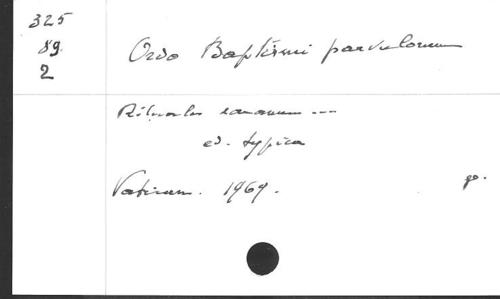 325
89.
2
Ordo Baptismi parvulorum
Rituale romanum ...
ed. typica
Vatican. 1969.
go.